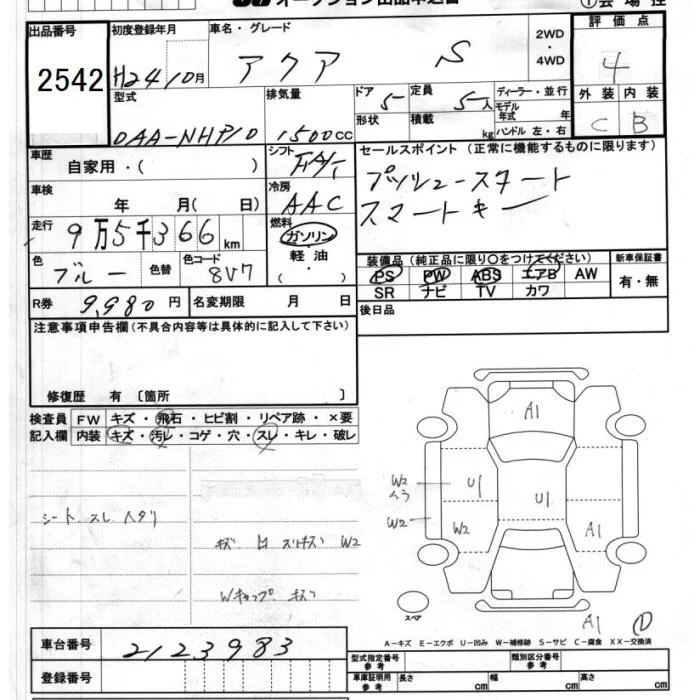 オークション出品申込書
①会場控
出品番号 2542
初度登録年月 H24年10月
車名・グレード アクア S
2WD・4WD
評価点 4
外装 C 内装 B
型式 DAA-NHP10
排気量 1500cc
ドア 5 形状
定員 5人 積載 kg
ディーラー・並行
モデル年式 年
ハンドル 左・右
車歴 自家用・( )
シフト FAT
セールスポイント (正常に機能するものに限ります)
プッシュースタート
スマートキー
車検 年 月( 日)
冷房 AAC
走行 9万5千366km
燃料 ガソリン 軽油 ( ・ )
色 ブルー 色替 色コード 8V7
装備品 (純正品に限り○をつけてください)
PS PW ABS エアB AW
SR ナビ TV カワ
新車保証書 有・無
R券 9,980円
名変期限 月 日
後日品
注意事項申告欄(不具合内容等は具体的に記入して下さい)
修復歴 有 〔箇所 〕
検査員記入欄
FW キズ・飛石・ヒビ割・リペア跡・×要
内装 キズ・汚レ・コゲ・穴・スレ・キレ・破レ
シート スレ ヘタリ
キズ 凹 スリキズ W2
Wキャップ キズ
A1
W2
U1
U1
W2
W2
A1
スペア
A1
A-キズ E-エクボ U-凹み W-補修跡 S-サビ C-腐食 XX-交換済
車台番号 2123983
登録番号
型式指定番号 参考
類別区分番号 参考
車庫証明用 参考 長さ cm 幅 cm 高さ cm